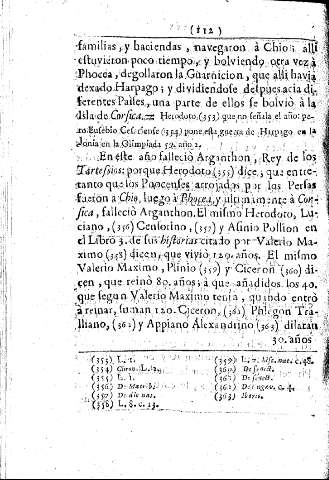 (112)
familias, y haciendas, navegaron à Chio: alli
estuvieron poco tiempo, y bolviendo otra vez à
Phocea, degollaron la Guarnicion, que alli havia
dexado Harpago; y dividiendose despues acia di-
ferentes Paises, una parte de ellos se bolviò à la
Isla de Corsica. Herodoto (353) que no señala el año: pe-
ro Eusebio Cesariense (354) pone esta guerra de Harpago en la
Jonia en la Olimpiada 59. año 2.
En este año falleciò Arganthon, Rey de los
Tartessios: porque Herodoto (355) dice, que entre-
tanto que los Phocenses arrojados por los Persas
fueron a Chio, luego à Phocea, y ultimamente à Cor-
sica, falleciò Arganthon. El mismo Herodoto, Lu-
ciano, (356) Censorino, (357) y Asinio Pollion en
el Libro 3. de sus historias citado por Valerio Ma-
ximo (358) dicen, que viviò 120. años. El mismo
Valerio Maximo, Plinio (359) y Ciceron (360) di-
cen, que reinò 80. años; à que añadidos los 40.
que segun Valerio Maximo tenia, quando entrò
à reinar, suman 120. Ciceron, (361) Phlegon Tra-
lliano, (362) y Appiano Alexandrino (363) dilatan
30. años
(353) L. 1.
(354) Chron. L. 2.
(355) L. 1.
(356) De Macrobi.
(357) De die nat.
(358) L. 8. c. 13.
(359) L. 7. hist. nat. c. 48.
(360) De senect.
(361) De senect.
(362) De longaev. c. 4.
(363) Iberic.